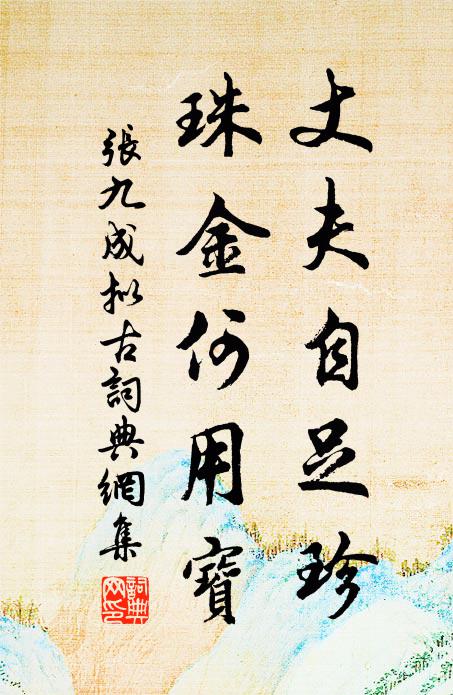 丈夫自足珍
珠金何用寶
張九成拟古詞典網集
詞典網印